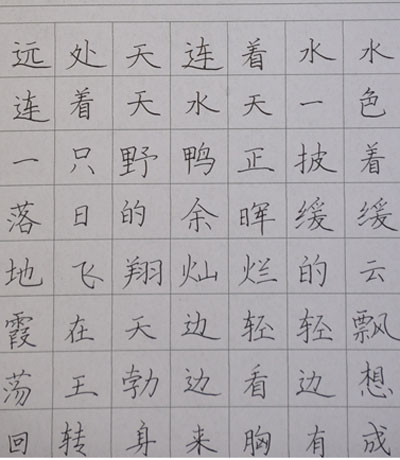 远处天连着水水
连着天水天一色
一只野鸭正披着
落日的余晖缓缓
地飞翔灿烂的云
霞在天边轻轻飘
荡王勃边看边想
回转身来胸有成